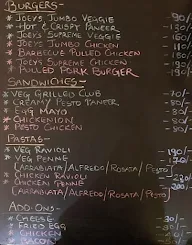 BURGERS-
* JOEYS JUMBO VEGGIE -90/-
* HOT & CRISPY PANEER
* JOEYS SUPREME VEGGIE
* JOEYS JUMBO CHICKEN
* BARBEQUE PULLED CHICKEN
* JOEYS SUPREME CHICKEN
* PULLED PORK BURGER
SANDWICHES-
* VEG GRILLED CLUB -70/-
* CREAMY PESTO PANEER -80/-
* EGG MAYO
* CHICKENION
* PESTO CHICKEN
PASTAS-
* VEG RAVIOLI -190/-
* VEG PENNE
(ARRABIATA/ALFREDO/ROSATA/PESTO)
* CHICKEN RAVIOLI
* CHICKEN PENNE
(ARRABIATA/ALFREDO/ROSATA/PESTO)
ADD-ONS-
* CHEESE -30/-
* FRIED EGG
* CHICKEN
* BACON